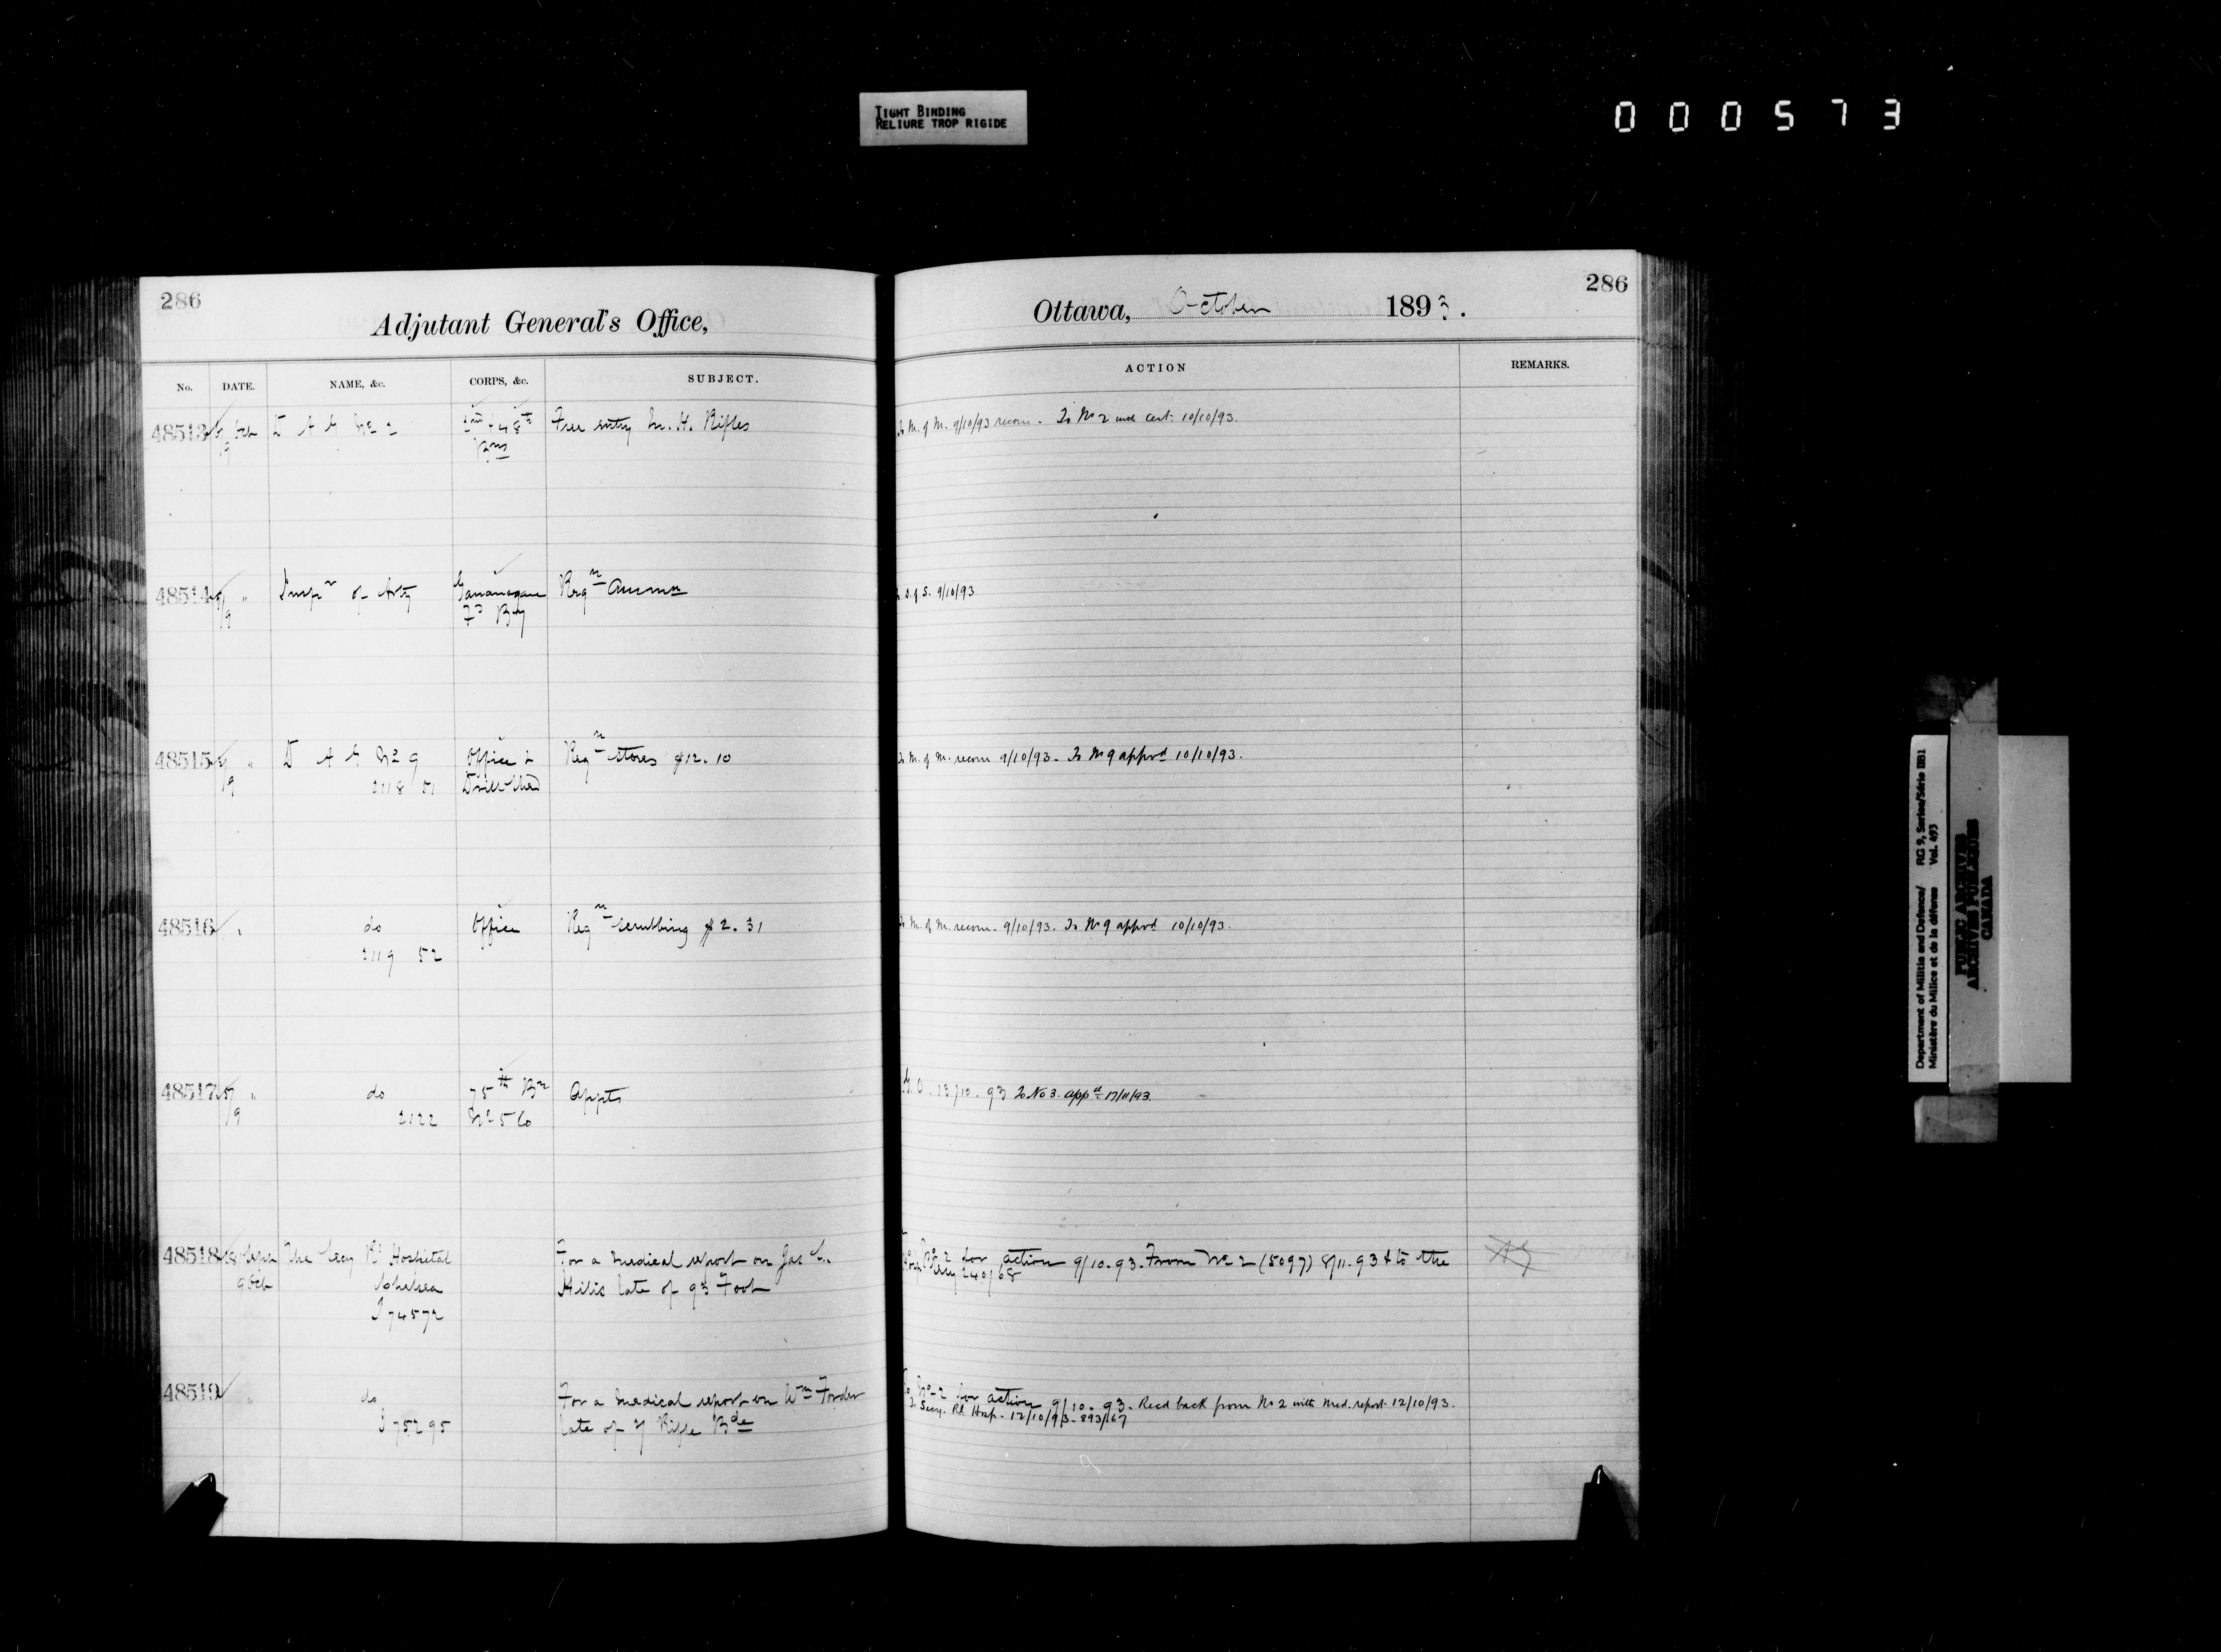 TIGHT BINDING
RELIURE TROP RIGIDE
000573
286
Adjutant General's Office,
No. DATE. NAME, &c. CORPS, &c. SUBJECT.
48513 Oct D A G No 2 48th Free entry M. H. Rifles
9 Bns
48514 " Inspr of Arty Gananoque Reqn Ammn
9 Fd Bty
48515 " D A G No 9 Office & Reqn stores $12.10
9 2118 51 Drill Shed
48516 " do Office Reqn scrubbing $2.31
2119 52
48517 " do 75th Bn Appts
9 2122 No 5 Co
48518 Sepr The Secy Rl Hospital For a medical report on Jas
9 Oct Chelsea Hillis late of 93 Foot
74572
48519 " do For a medical report on Wm Forder
75295 late of Rifle Bde
286
Ottawa, October 1893.
ACTION REMARKS.
To M. of M. 9/10/93 recom. To No 2 with cert. 10/10/93.
S. of S. 9/10/93
To M. of M. recom 9/10/93. To No 9 approd 10/10/93.
To M. of M. recom. 9/10/93. To No 9 approd 10/10/93.
G. O. 13/10.93 To No 3. appd 17/11/93.
To No 2 for action 9/10.93. From No 2 (5097) 8/11.93 & to the
Secy 240/68
To No 2 for action 9/10.93. Recd back from No 2 with med. report 12/10/93.
To Secy. Rl Hosp. 12/10/93. 893/67
Department of Militia and Defence/ RG 9, Series/Série IIB1
Ministère du Milice et de la défense Vol. 493
PUBLIC ARCHIVES
ARCHIVES PUBLIQUES
CANADA